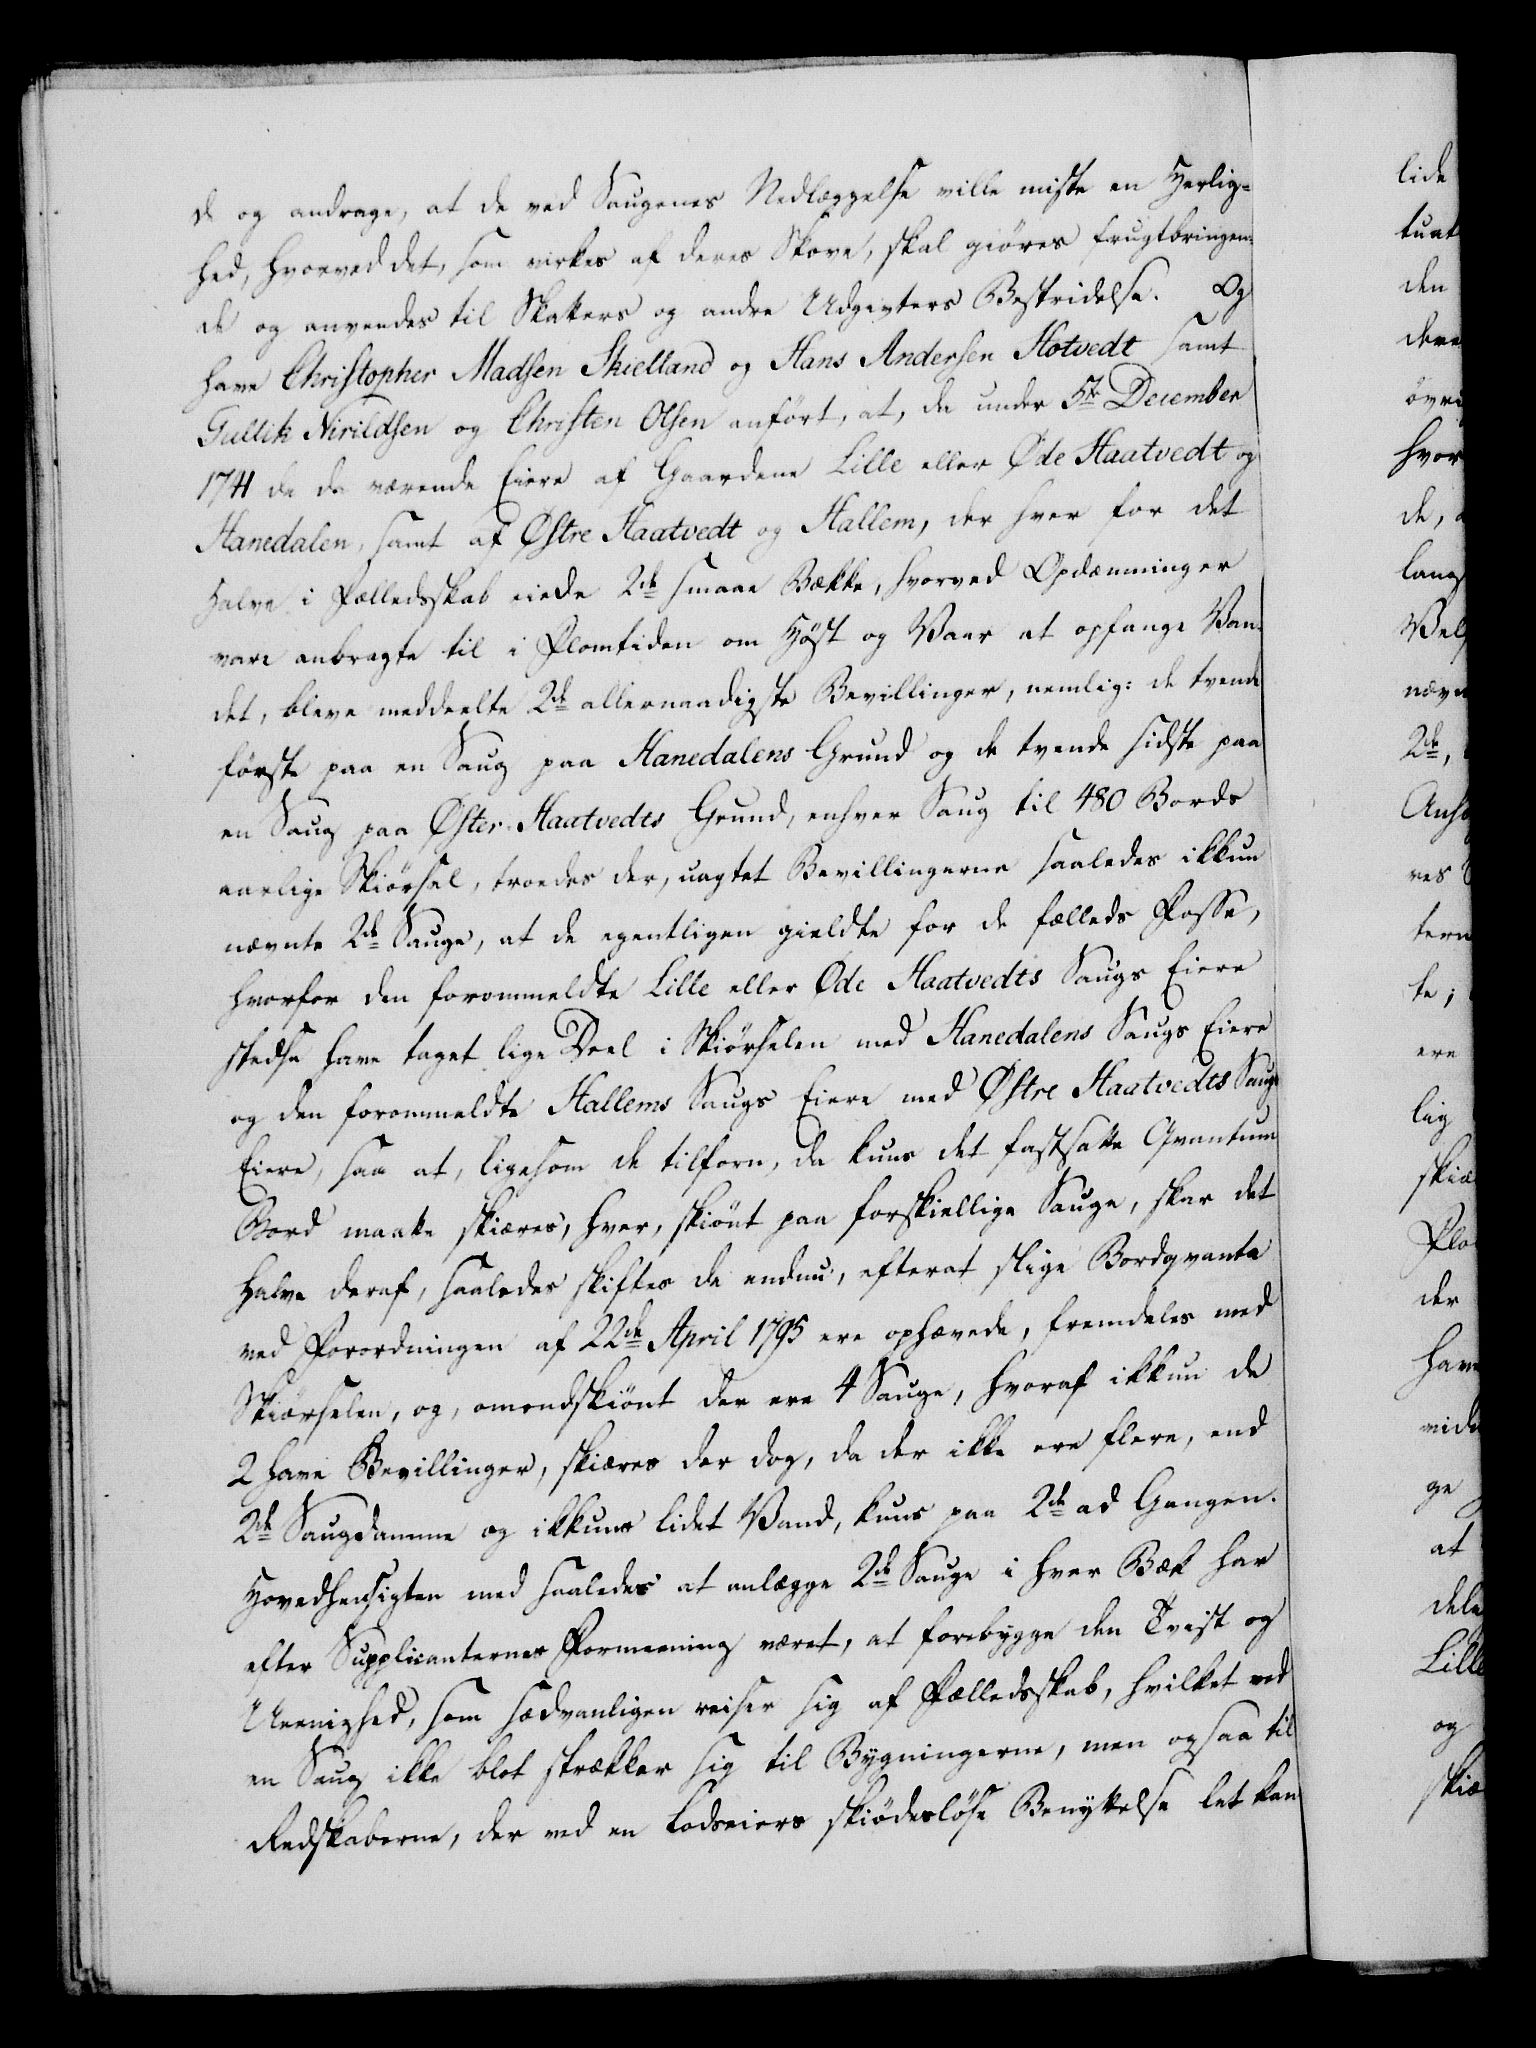 de og andrage, at de ved Saugenes Nedlæggelse ville miste en Herlig=
hed, hvorved det, som virkes af deres Skove, skal giøres frugtbringen=
de og anvendes til Skatters og andre Udgivters Bestridelse. Og
have Christopher Madsen Skielland og Hans Andersen Hotvedt samt
Gullik Nirildsen og Christen Olsen anført, at, da under 5te December
1741 de da værende Eiere af Gaardene Lille eller Øde Haatvedt og
Hanedalen, samt af Østre Haatvedt og Hallem, der hver for det
halve i Fælledsskab eiede 2de smaae Bække, hvorved Opdæmninger
vare anbragte til i Flomtiden om Høst og Vaar at opfange Van=
det, bleve meddeelte 2de allernaadigste Bevillinger, nemlig: de tvende
første paa en Saug paa Hanedalens Grund og de tvende sidste paa
en Saug paa Øster-Haatvedts Grund, enhver Saug til 480 Bords
aarlige Skiørsel, troedes der, uagtet Bevillingerne saaledes ikkun
nævnte 2de Sauge, at de egentligen gieldte for de fælleds Fosse,
hvorfor den forommeldte Lille eller Øde Haatvedts Saugs Eiere
stedse have taget lige Deel i Skiørselen med Hanedalens Saugs Eiere
og den forommeldte Hallems Saugs Eiere med Østre Haatvedts Saugs
Eiere, saa at, ligesom de tilforn, da kuns det fastsatte Qvantum
Bord maatte skiæres, hver, skiønt paa forskiellige Sauge, skar det
halve deraf, saaledes skiftes de endnu, efterat slige Bordqvanta
ved Forordningen af 22de April 1795 ere ophævede, fremdeles med
Skiørselen, og, omendskiønt der ere 4 Sauge, hvoraf ikkun de
2 have Bevillinger, skiæres der dog, da der ikke ere flere, end
2de Saugdamme og ikkuns lidet Vand, kuns paa 2de ad Gangen.
Hovedhensigten med saaledes at anlægge 2de Sauge i hver Bæk har
efter Supplicanternes Formeening været, at forebygge den Tvist og
Ueenighed, som sædvanligen reiser sig af Fælledsskab, hvilket ved
en Saug ikke blot strækker sig til Bygningerne, men ogsaa til
Redskaberne, der ved en Lodseiers skiødesløse Benyttelse let kan
lide
tuat
den
dere
øvri
hvor
de,
lang
Vel
næv
2de,
Ans
res
tern
te;
ere
lig
skiæ
Flo
der
have
vide
ge
at
dele
Lille
og
skiæ